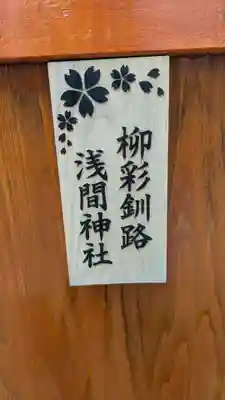 柳彩釧路
浅間神社